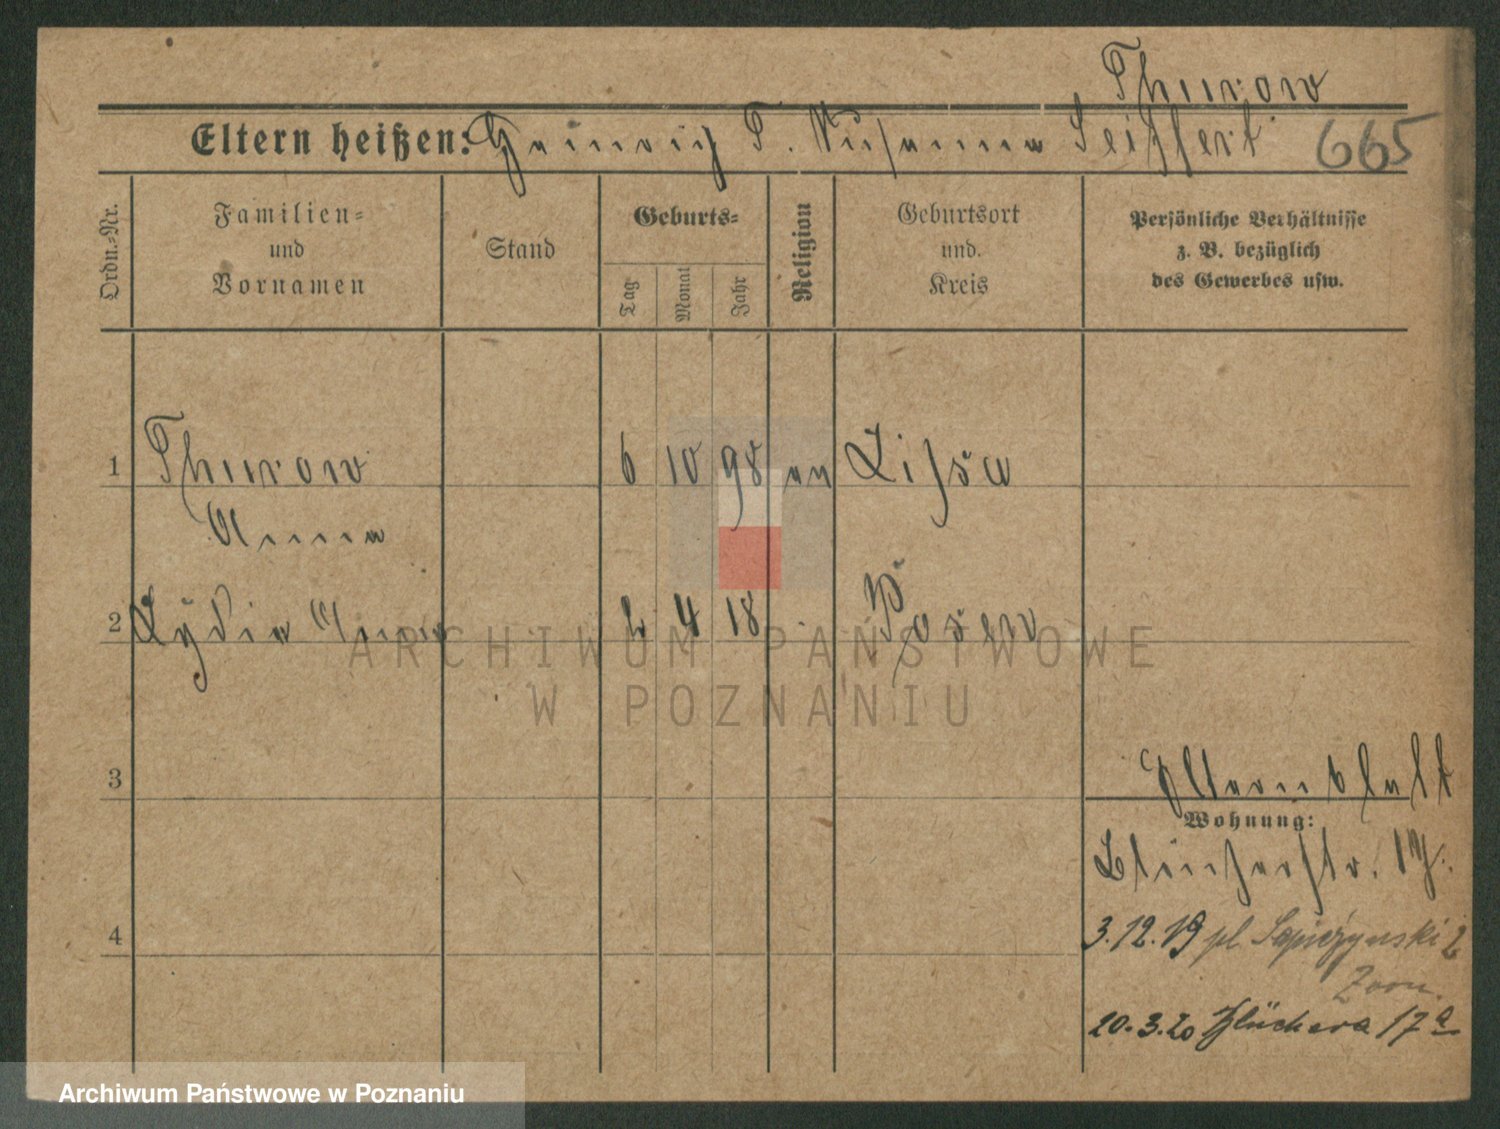 Thurow
Eltern heißen: Heinrich T. Susanna Seiffert 665
Ordn.-Nr.
Familien-
und
Vornamen
Stand
Geburts-
Tag
Monat
Jahr
Religion
Geburtsort
und
Kreis
Persönliche Verhältnisse
z. B. bezüglich
des Gewerbes usw.
1 Thurow 6 10 98 ev Lissa
Anna
2 Lydia Anna 2 4 18 Posen
3
Elternblatt
Wohnung:
Blücherstr. 17.
4
3.12.19 pl. Sapieżynski 2
20.3.20 Blüchera 17a
ARCHIWUM PAŃSTWOWE
W POZNANIU
Archiwum Państwowe w Poznaniu